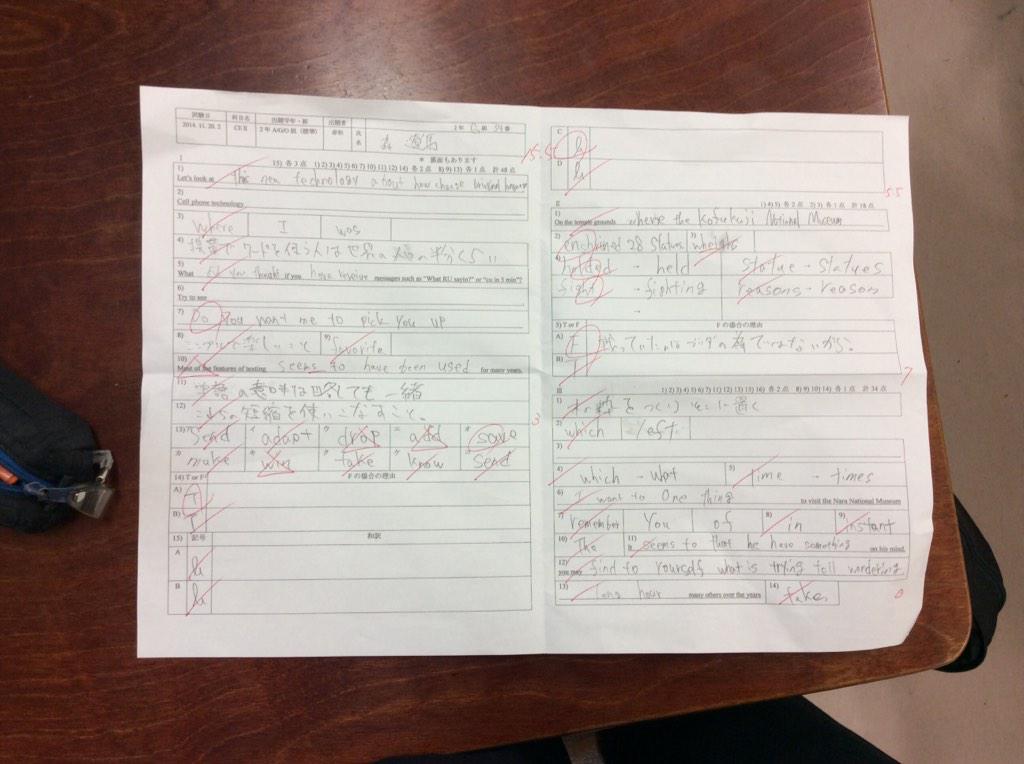 試験日 科目名 出題学年・組 出題者
2014.11.28.2 CEⅡ 2年A/G/O組(標準) 氏名 2年 組 番
15.5
＊ 裏面もあります
I 15) 各3点 1)2)3)4)5)6)7)10)11)12)14) 各2点 8)9)13) 各1点 計48点
1) Let's look at This new technology about how change
2) Cell phone technology
3) Where I was
4) 携帯で ワードを使う人は世界の 半分くらい
5) What do you thought if you have receive messages such as "What RU sayin?" or "cu in 5 min"?
6) Try to see
7) Do You want me to pick you up
8) シンプルで楽しいこと 9) favorite
10) Most of the features of texting seems to have been used for many years.
11) 単語の意味は略しても一緒
12) これらの短縮を使いこなすこと。
3
13) ア Send イ adapt ウ drop エ add オ save
カ make キ win ク take ケ know コ send
14) T or F Fの場合の理由
A) T
B) T
15) 記号 和訳
A
B
C
D
5.5
Ⅱ 1)4)5) 各2点 2)3) 各1点 計18点
1) On the temple grounds where the Kofukuji National Museum
2) enchained 28 statues 3) wheights
4) holded - held statue - statues
fight - fighting reasons - reason
5) T or F Fの場合の理由
A) F
B) T
7
Ⅲ 1)2)3)4)5)6)7)11)12)13)15)16) 各2点 8)9)10)14) 各1点 計34点
1)
2) which left
3)
4) which - wat 5) time - times
6) I want to One thing to visit the Nara National Museum
7) remember You of 8) in 9) instant
10) The 11) It seems to that he have something on his mind.
12) you may find to yourself what is trying tell wondering
13) long hour many others over the years 14) takes
0